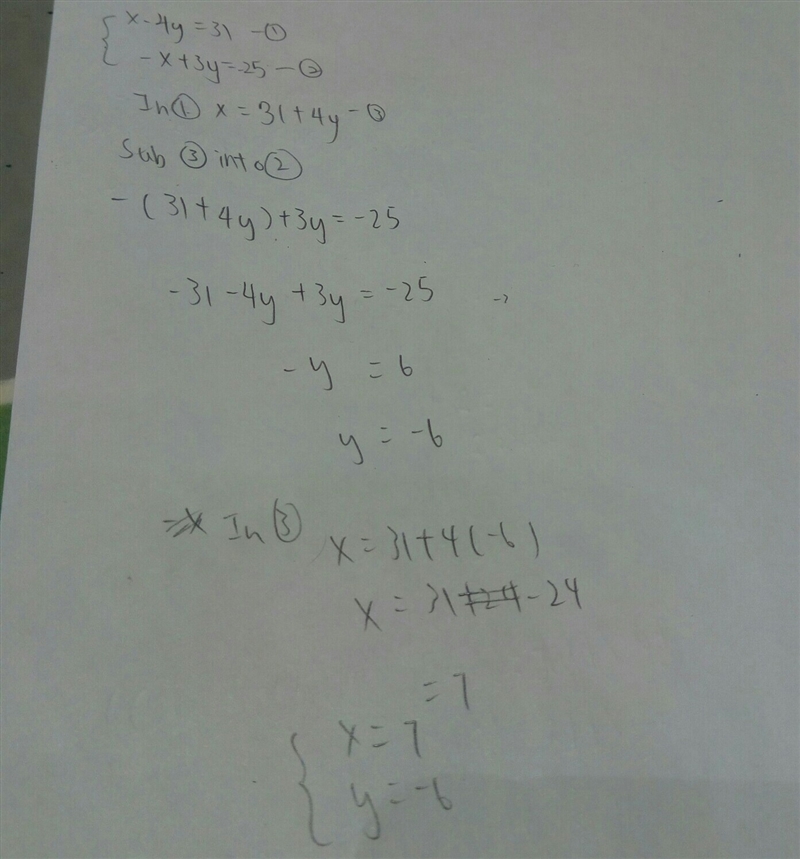 { x - 4y = 31 - ①
- x + 3y = -25 - ②
In ① x = 31 + 4y - ③
Sub ③ into ②
- (31 + 4y) + 3y = -25
-31 - 4y + 3y = -25
- y = 6
y = -6
In ③ x = 31 + 4(-6)
x = 31 - 24
= 7
{ x = 7
y = -6